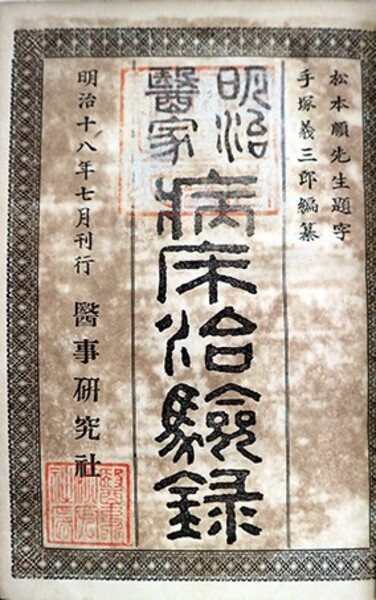 松本順先生題字
手塚義三郎編纂
明治
醫家
病床治驗録
明治十八年七月刊行
醫事研究社